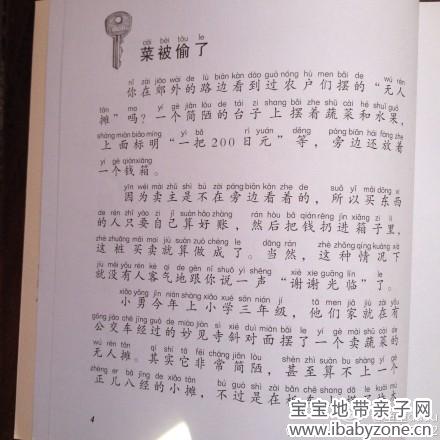 cài bèi tōu le
菜被偷了
nǐ zài jiāo wài de lù biān kàn dào guò nóng hù men bǎi de wú rén
你在郊外的路边看到过农户们摆的“无人
tān ma yí gè jiǎn lòu de tái zi shang bǎi zhe shū cài hé shuǐ guǒ
摊”吗？一个简陋的台子上摆着蔬菜和水果，
shàng miàn biāo míng yì bǎ rì yuán děng páng biān hái fàng zhe
上面标明“一把200日元”等，旁边还放着
yí gè qián xiāng
一个钱箱。
yīn wèi mài zhǔ shì bú zài páng biān kàn zhe de suǒ yǐ mǎi dōng xi
因为卖主是不在旁边看着的，所以买东西
de rén zhǐ yào zì jǐ suàn hǎo zhàng rán hòu bǎ qián rēng jìn xiāng zi lǐ
的人只要自己算好账，然后把钱扔进箱子里，
zhè zhuāng mǎi mai jiù suàn zuò chéng le dāng rán zhè zhǒng qíng kuàng xià
这桩买卖就算做成了。当然，这种情况下
jiù méi yǒu rén kè qi de gēn nǐ shuō yì shēng xiè xie guāng lín le
就没有人客气地跟你说一声“谢谢光临”了。
xiǎo yǒng jīn nián shàng xiǎo xué sān nián jí tā men jiā jiù zài yǒu
小勇今年上小学三年级，他们家就在有
gōng jiāo chē jīng guò de miào jiàn sì xié duì miàn bǎi le yí gè mài shū cài de
公交车经过的妙见寺斜对面摆了一个卖蔬菜的
wú rén tān qí shí tā fēi cháng jiǎn lòu shèn zhì suàn bu shàng yí gè
无人摊。其实它非常简陋，甚至算不上一个
zhèng er bā jīng de xiǎo tān bú guò shì zài bǎn chē shang dā le kuài mù
正儿八经的小摊，不过是在
4
宝宝地带亲子网
www.ibabyzone.cn